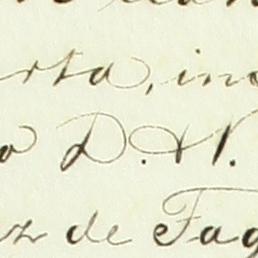 rta, in
o D. N.
z de Fag